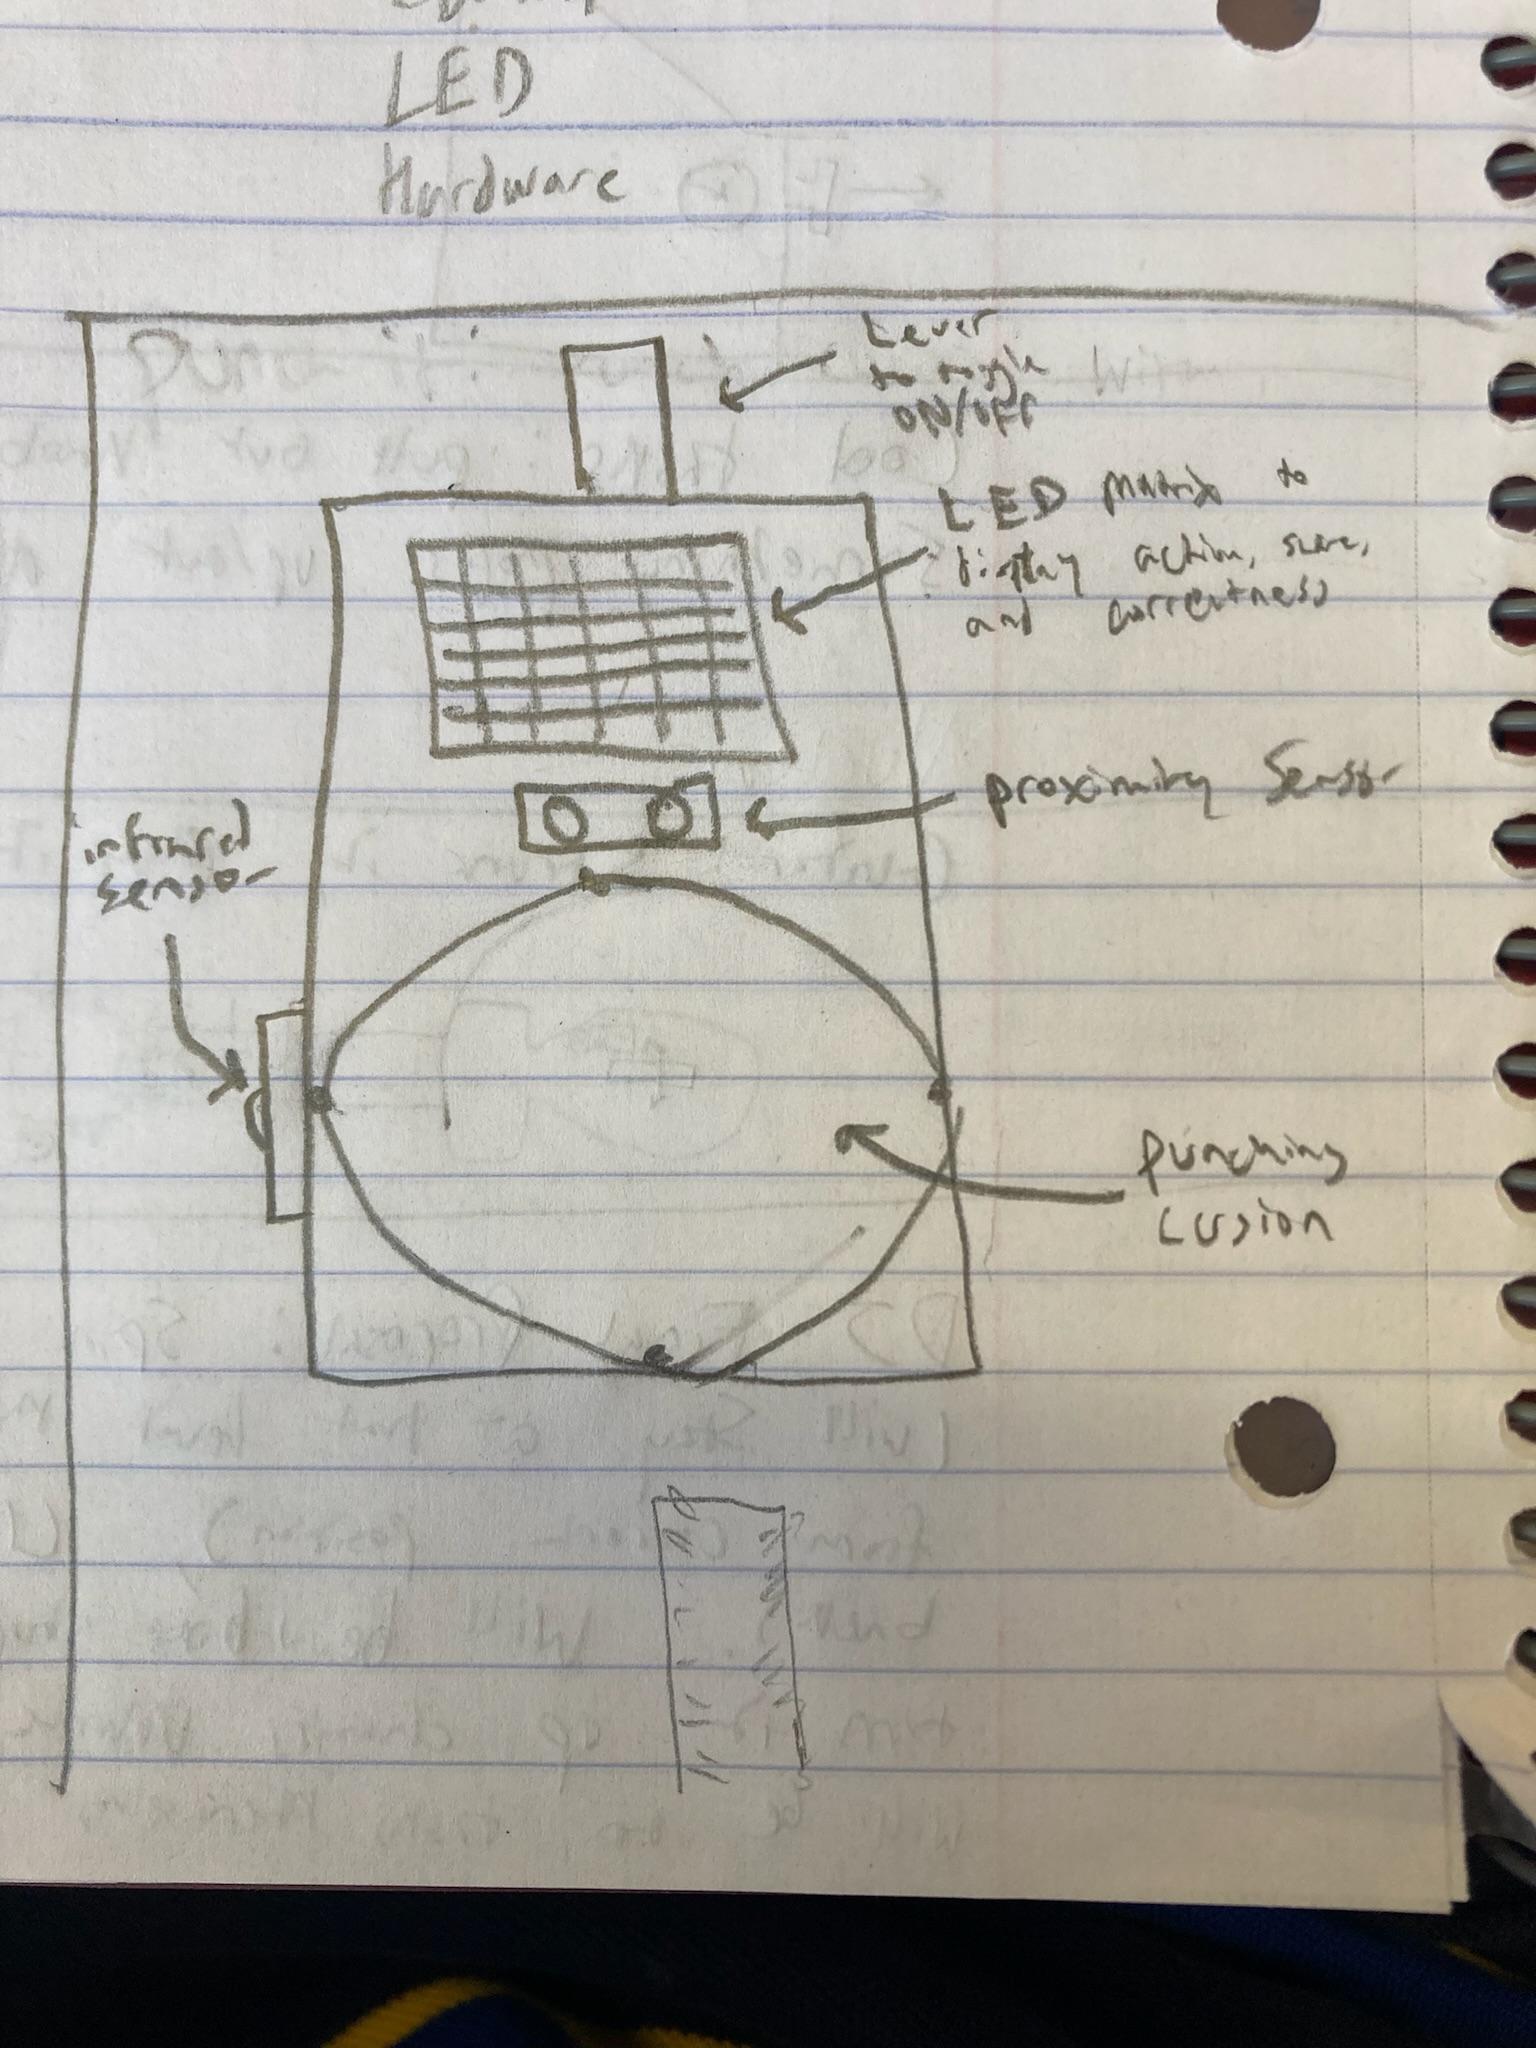 LED
Hardware
Lever
to toggle
ON/OFF
LED Matrix to
display action, score,
and correctness
proximity Sensor
infrared
sensor
punching
cusion